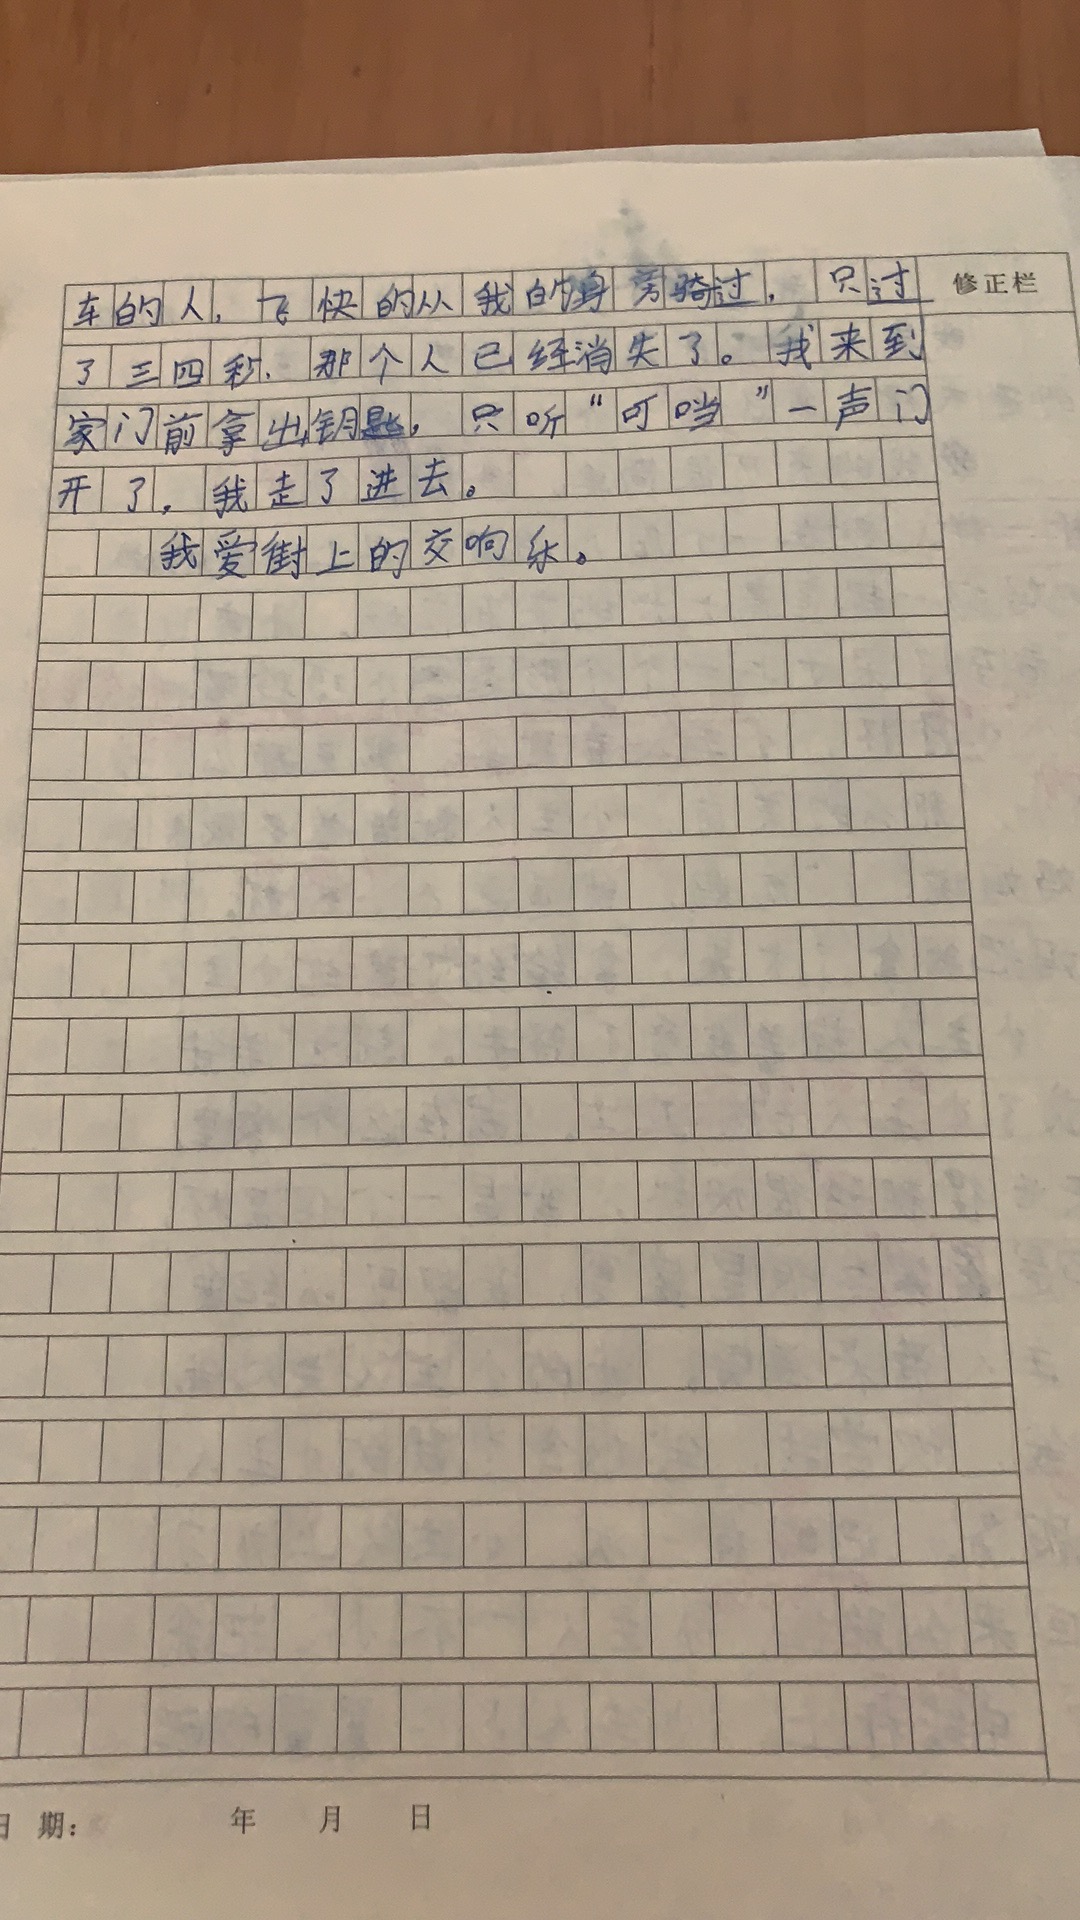 车的人，飞快的从我的身旁骑过，只过
修正栏
了三四秒，那个人已经消失了。我来到
家门前拿出钥匙，只听“叮当”一声门
开了，我走了进去。
我爱街上的交响乐。
日期：　年　月　日